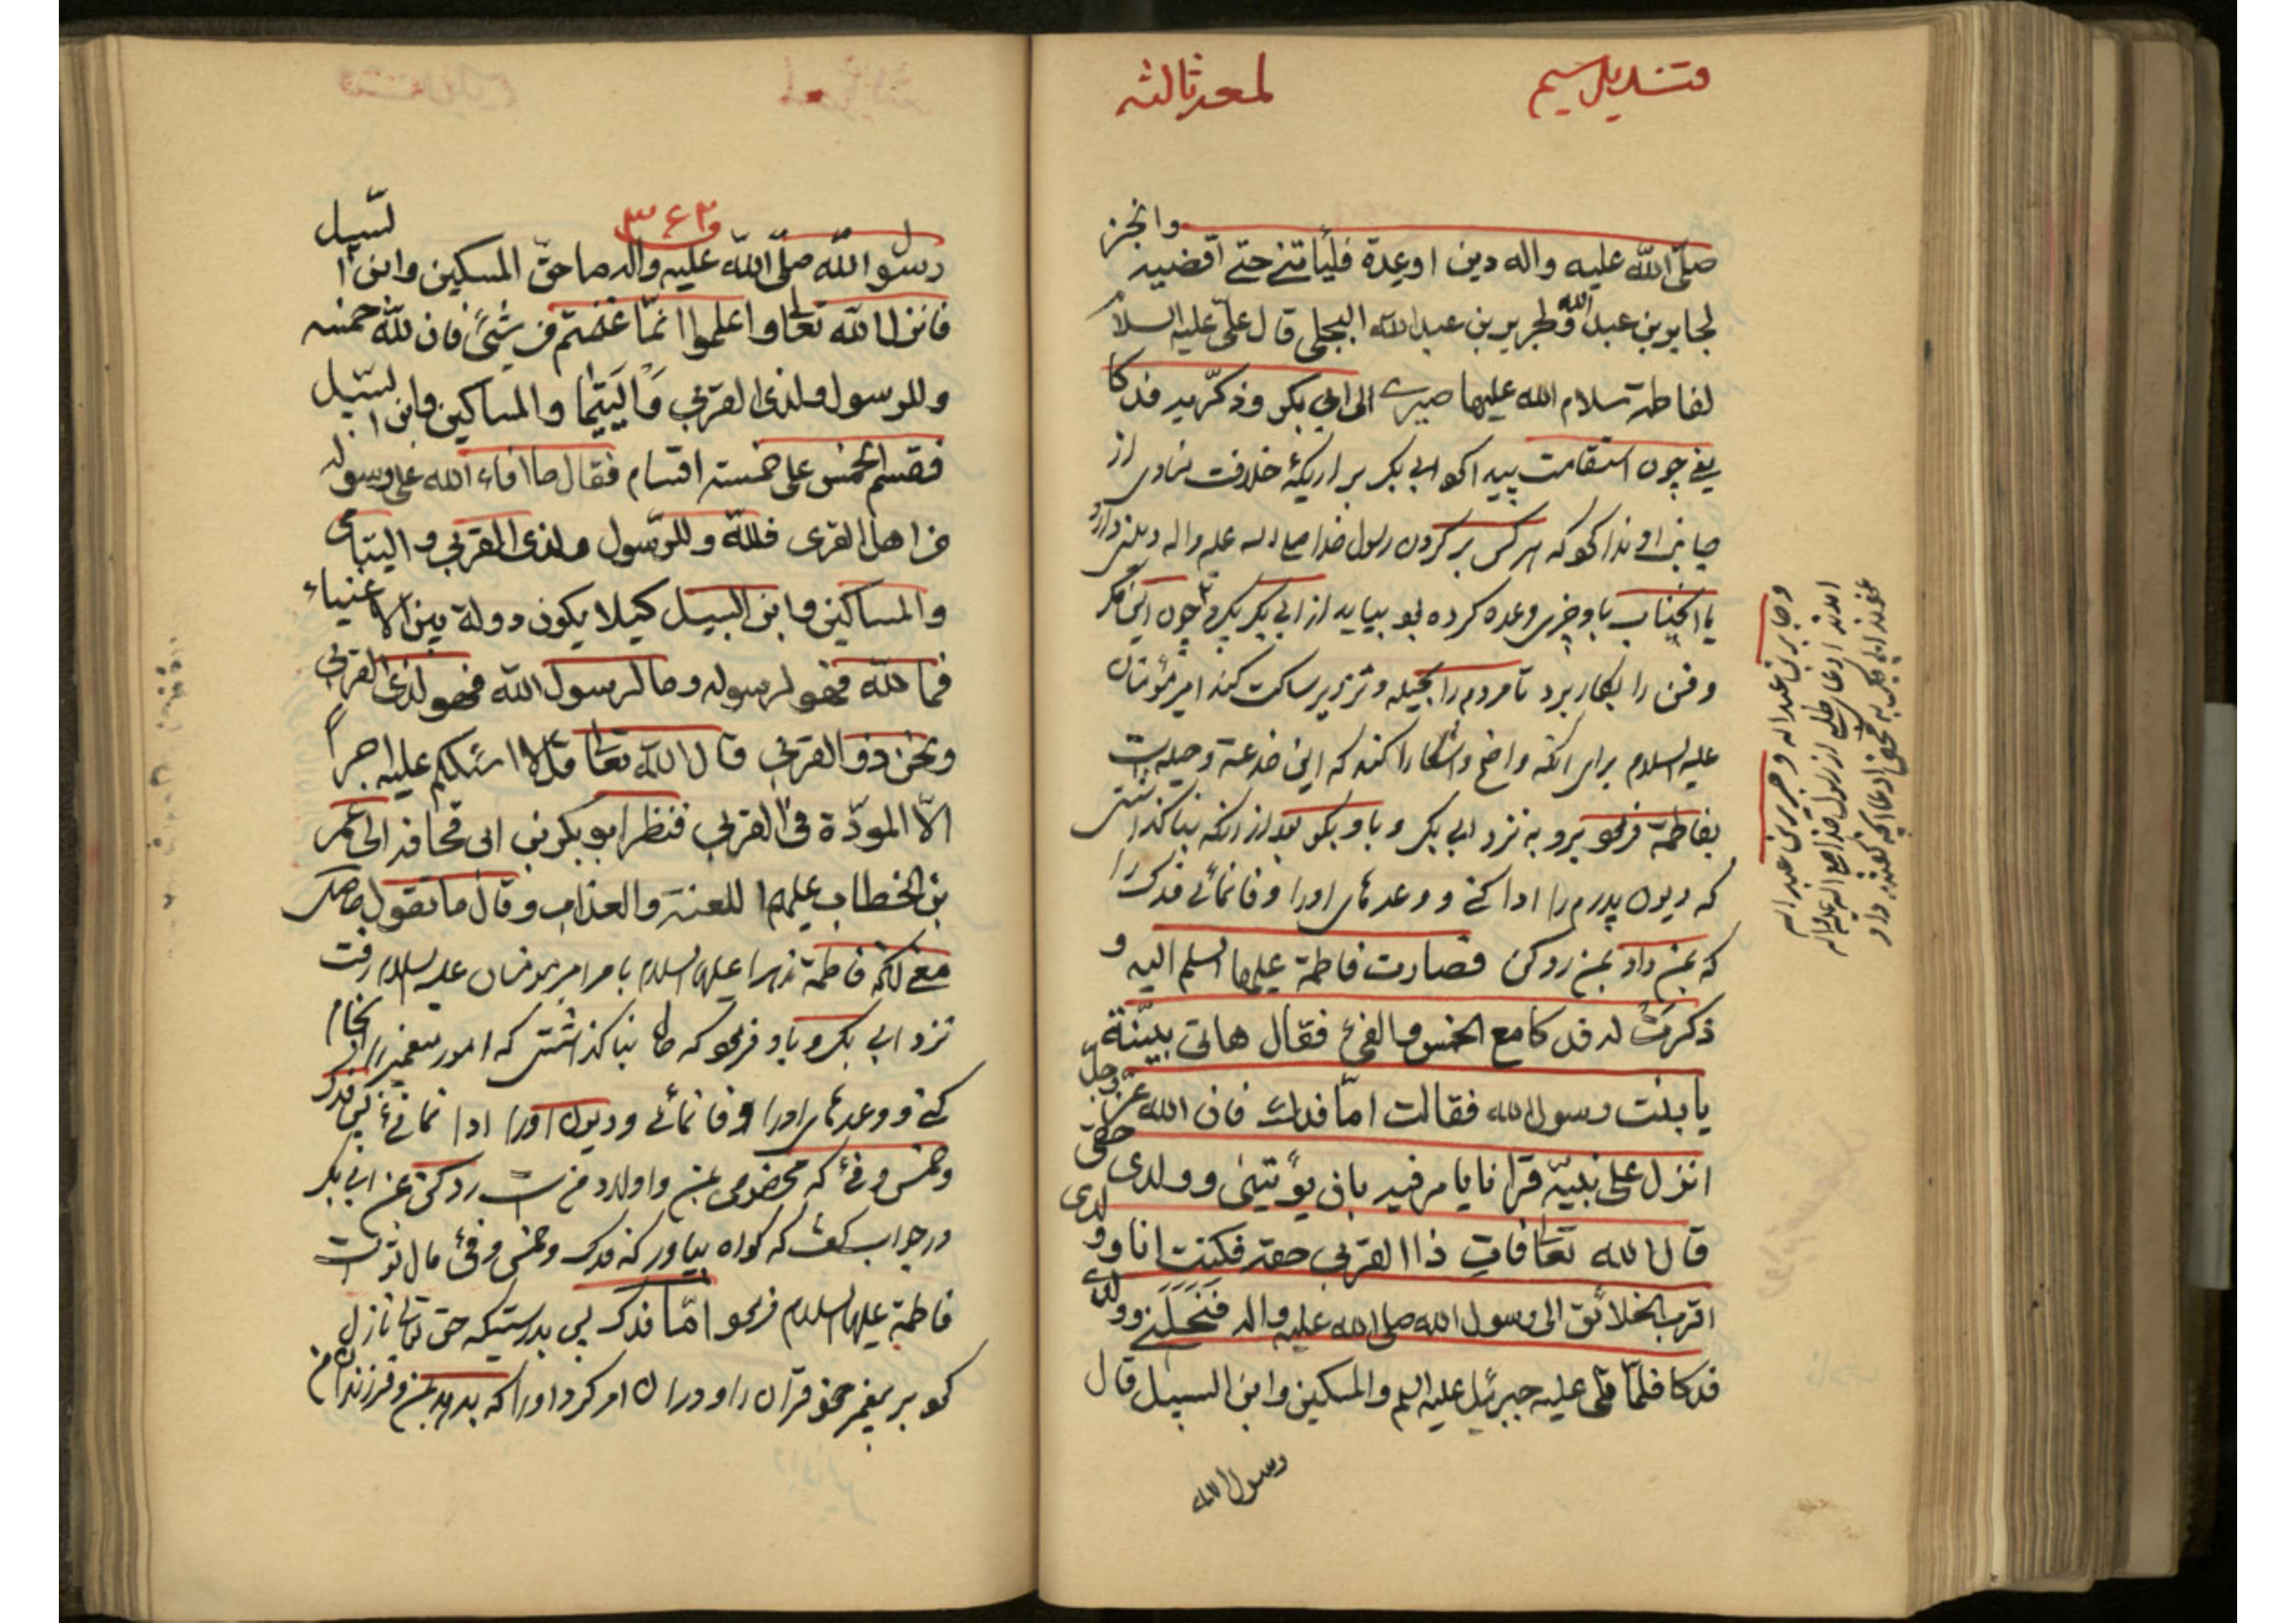 قندیل سیم
لمعه ثالثه
صلّی اللّه علیه واله دین او عدة فلیأتنی حتی اقضیه وانجز
لجابر بن عبد الله ولجریر بن عبد الله البجلی قال علیّ علیه السلام
لفاطمة سلام الله علیها صیری الی ابی بکر وذکّریه فدکا
یعنی چون استقامت پیدا کرد ابی بکر بر اریکهٔ خلافت منادی از
جانب او ندا کرد که هر کس بر کردن رسول خدا صلی الله علیه واله دینی دارد
یا انجناب باو چیزی وعده کرده بود بیاید از ابی بکر بگیرد چون این مکر
وفن را بکار برد تا مردم را بحیله وتزویر ساکت کند امیر مؤمنان
علیه السلام برای انکه واضح واشکارا کند که این خدعة وحیله است
بفاطمة فرمود برو به نزد ابی بکر و باو بگو بعد از انکه بنا گذاشتی
که دیون پدرم را ادا کنی و وعدهای اورا وفا نمائی فدک را
که بمن داد بمن رد کن فصارت فاطمة علیها السلم الیه و
ذکرت له فدکا مع الخمس والفیٔ فقال هاتی بیّنة
یا بنت رسول الله فقالت امّا فدک فان الله عزّ وجلّ
انزل علی نبیّه قرآنا یامر فیه بان یؤتینی وولدی حقی
قال الله تعا فات ذا القربی حقه فکنت انا وولدی
اقرب الخلائق الی رسول الله صلی الله علیه واله فنحلنی وولدی
فدکا فلمّا تلی علیه جبرئیل علیه السلم والمسکین وابن السبیل قال
رسول الله
وجابر بن عبد اله وجریر بن عبد اله
۳۶۲
رسول اللّه صلّی اللّه علیه واله ما حقّ المسکین وابن السّبیل
فانزل اللّه تعالی واعلموا انمّا غنمتم من شیئ فان للّه خمسه
وللرسول ولذی القربی والیتیٰما والمساکین وابن السّبیل
فقسم الخمس علی خمسة اقسام فقال ما افاء الله علی رسوله
من اهل القری فللّه وللرّسول ولذی القربی والیتامی
والمساکین وابن السبیل کیلا یکون دولة بین الاغنیاء
فما للّه فهو لرسوله وما لرسول اللّه فهو لذی القربی
ونحن ذو القربی قال الله تعا قل لا اسئلکم علیه اجراً
الّا المودّة فی القربی فنظر ابو بکر بن ابی قحافه الی عمر
بن الخطاب علیهما اللعنة والعذاب وقال ما تقول
یعنی انکه فاطمة زهرا علیها السلام بامر امیر مؤمنان علیه السلام رفت
نزد ابی بکر و باو فرمود که حال بنا گذاشتی که امور پیغمبر را انجام
کنی و وعدهای اورا وفا نمائی ودیون اورا ادا نمائی پس فدک
وخمس وفیٔ که مخصوص بمن واولاد من است رد کن بمن ابی بکر
در جواب گفت که گواه بیاور که فدک وخمس وفیٔ مال تو است
فاطمة علیها السلام فرمود امّا فدک پس بدرستیکه حق تعالی نازل
کرد بر پیغمبر خود قرآن را ودر ان امر کرد اورا که بدهد بمن وفرزندان من